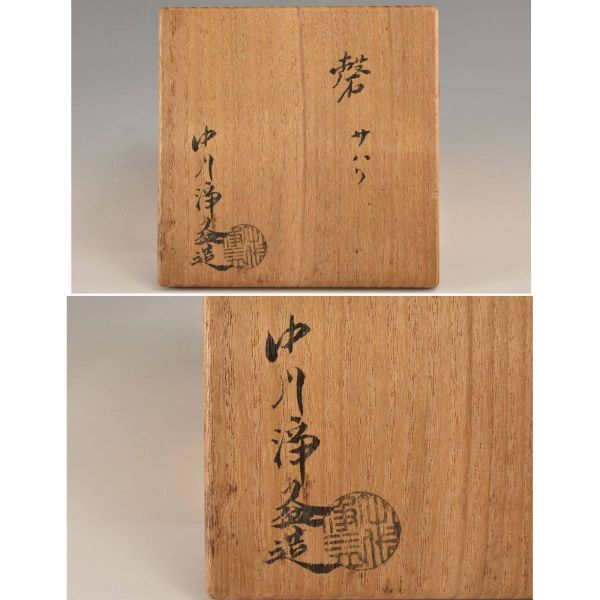 磬
サハリ
中川淨益造
中川淨益造